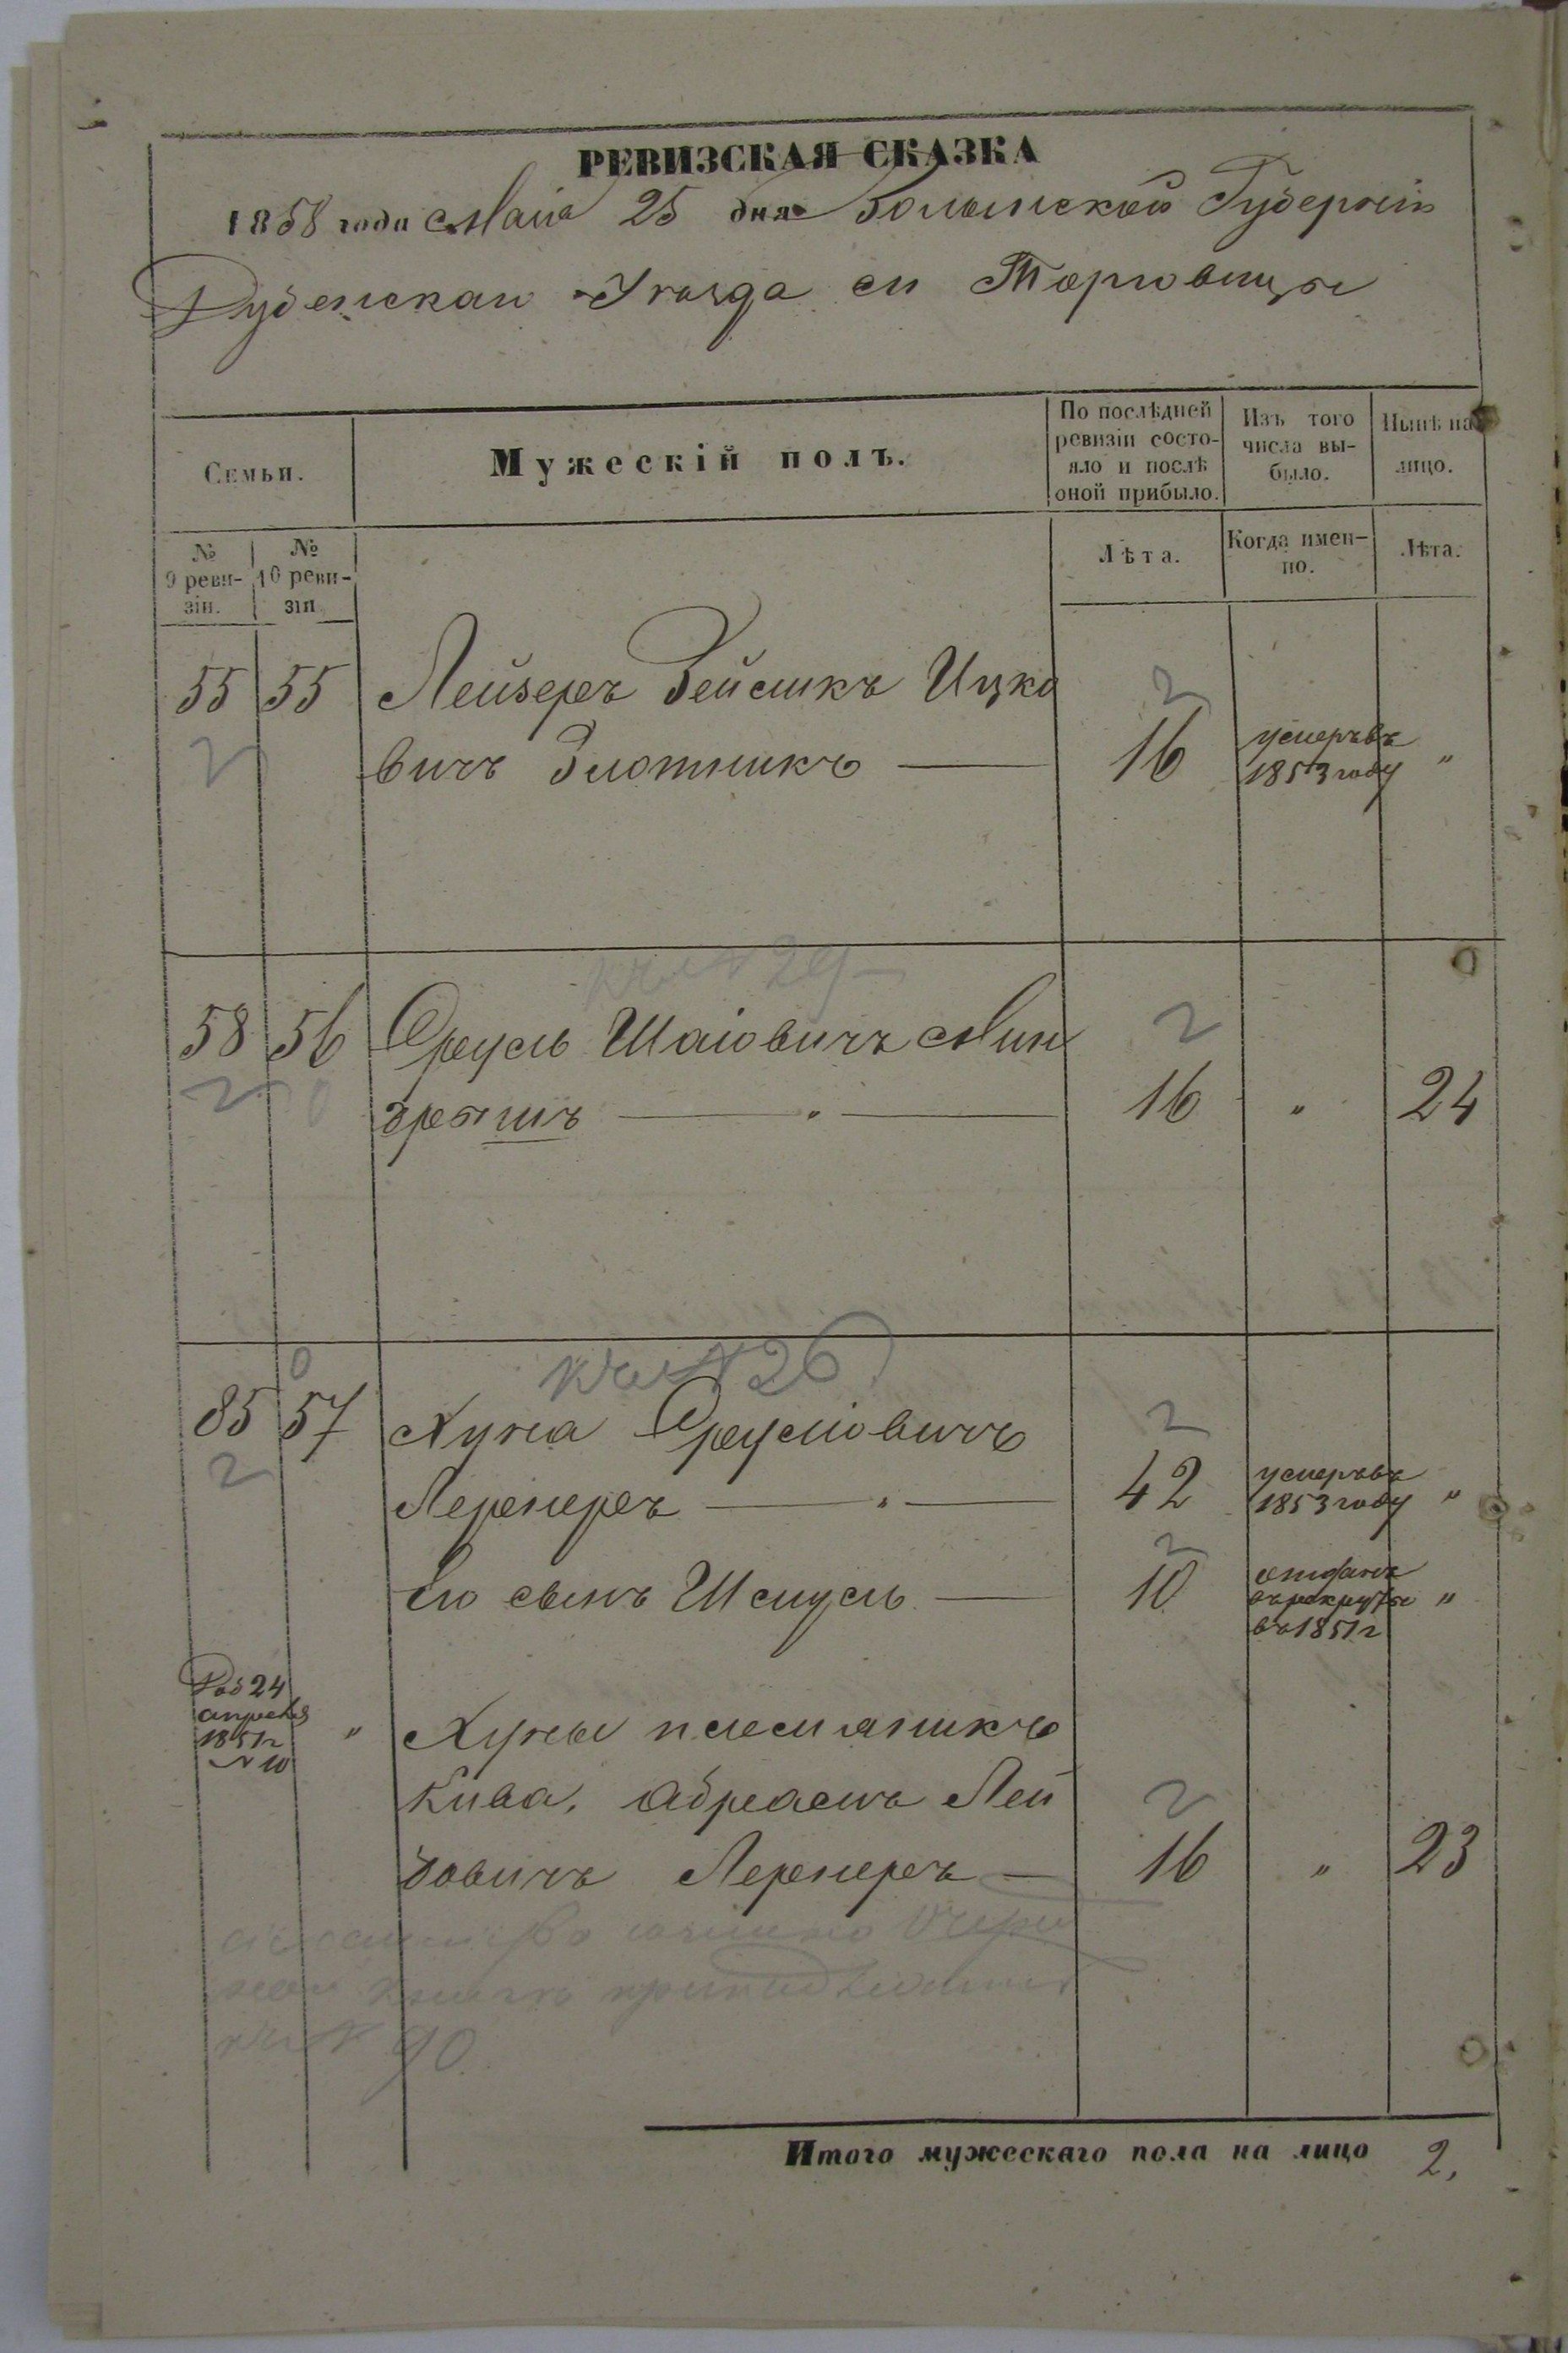 РЕВИЗСКАЯ СКАЗКА
1858 года Маія 25 дня Волынской Губерніи
Дубенскаго Уѣзда м Торговицы
Семьи.
Мужескій полъ.
По послѣдней ревизіи состояло и послѣ оной прибыло.
Изъ того числа выбыло.
Нынѣ на лицо.
№ 9 ревизіи.
№ 10 ревизіи
Лѣта.
Когда именно.
Лѣта.
55 55 Лейзеръ Бейсикъ Ицко
вичъ Плотникъ — 16 умеръ въ 1853 году "
кч N 29
58 56 Сруль Шаіовичъ Мин
дро — " — 16 " 24
кч N 26
85 57 Хуна Сруліовичъ
Лернеръ — " — 42 умеръ въ 1853 году "
Его сынъ Шмуль — 10 отданъ въ рекруты въ 1851 г "
24 апреля 1851 г N 10 " Хуны племяникъ
Кива Абрамъ Лей
бовичъ Лернеръ — 16 " 23
90
Итого мужескаго пола на лицо 2,